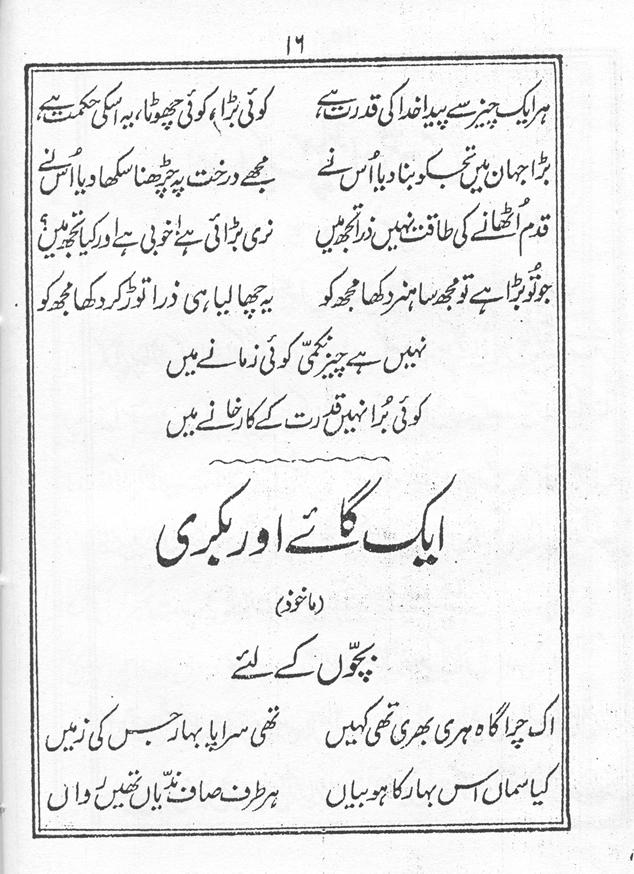 ۱۶
ہر ایک چیز سے پیدا خدا کی قدرت ہے کوئی بڑا، کوئی چھوٹا، یہ اسکی حکمت ہے
بڑا جہان میں تجکو بنا دیا اُس نے مجھے درخت پہ چڑھنا سکھا دیا اُس نے
قدم اُٹھانے کی طاقت نہیں ذرا تجھ میں نری بڑائی ہے! خوبی ہے اور کیا تجھ میں؟
جو تُو بڑا ہے تو مجھ سا ہنر دکھا مجھ کو یہ چھالیا ہی ذرا توڑ کر دکھا مجھ کو
نہیں ہے چیز نکمّی کوئی زمانے میں
کوئی بُرا نہیں قدرت کے کارخانے میں
ایک گائے اور بکری
(ماخوذ)
بچّوں کے لئے
اک چراگاہ ہری بھری تھی کہیں تھی سراپا بہار جس کی زمیں
کیا سماں اس بہار کا ہو بیاں ہر طرف صاف ندّیاں تھیں رواں